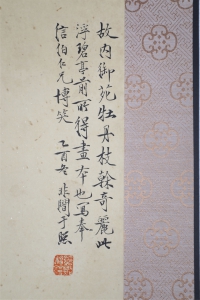 故内御苑牡丹枝榦奇麗此
浮碧亭前所得畫本也寫奉
信伯仁兄博笑
乙酉冬非闇于照